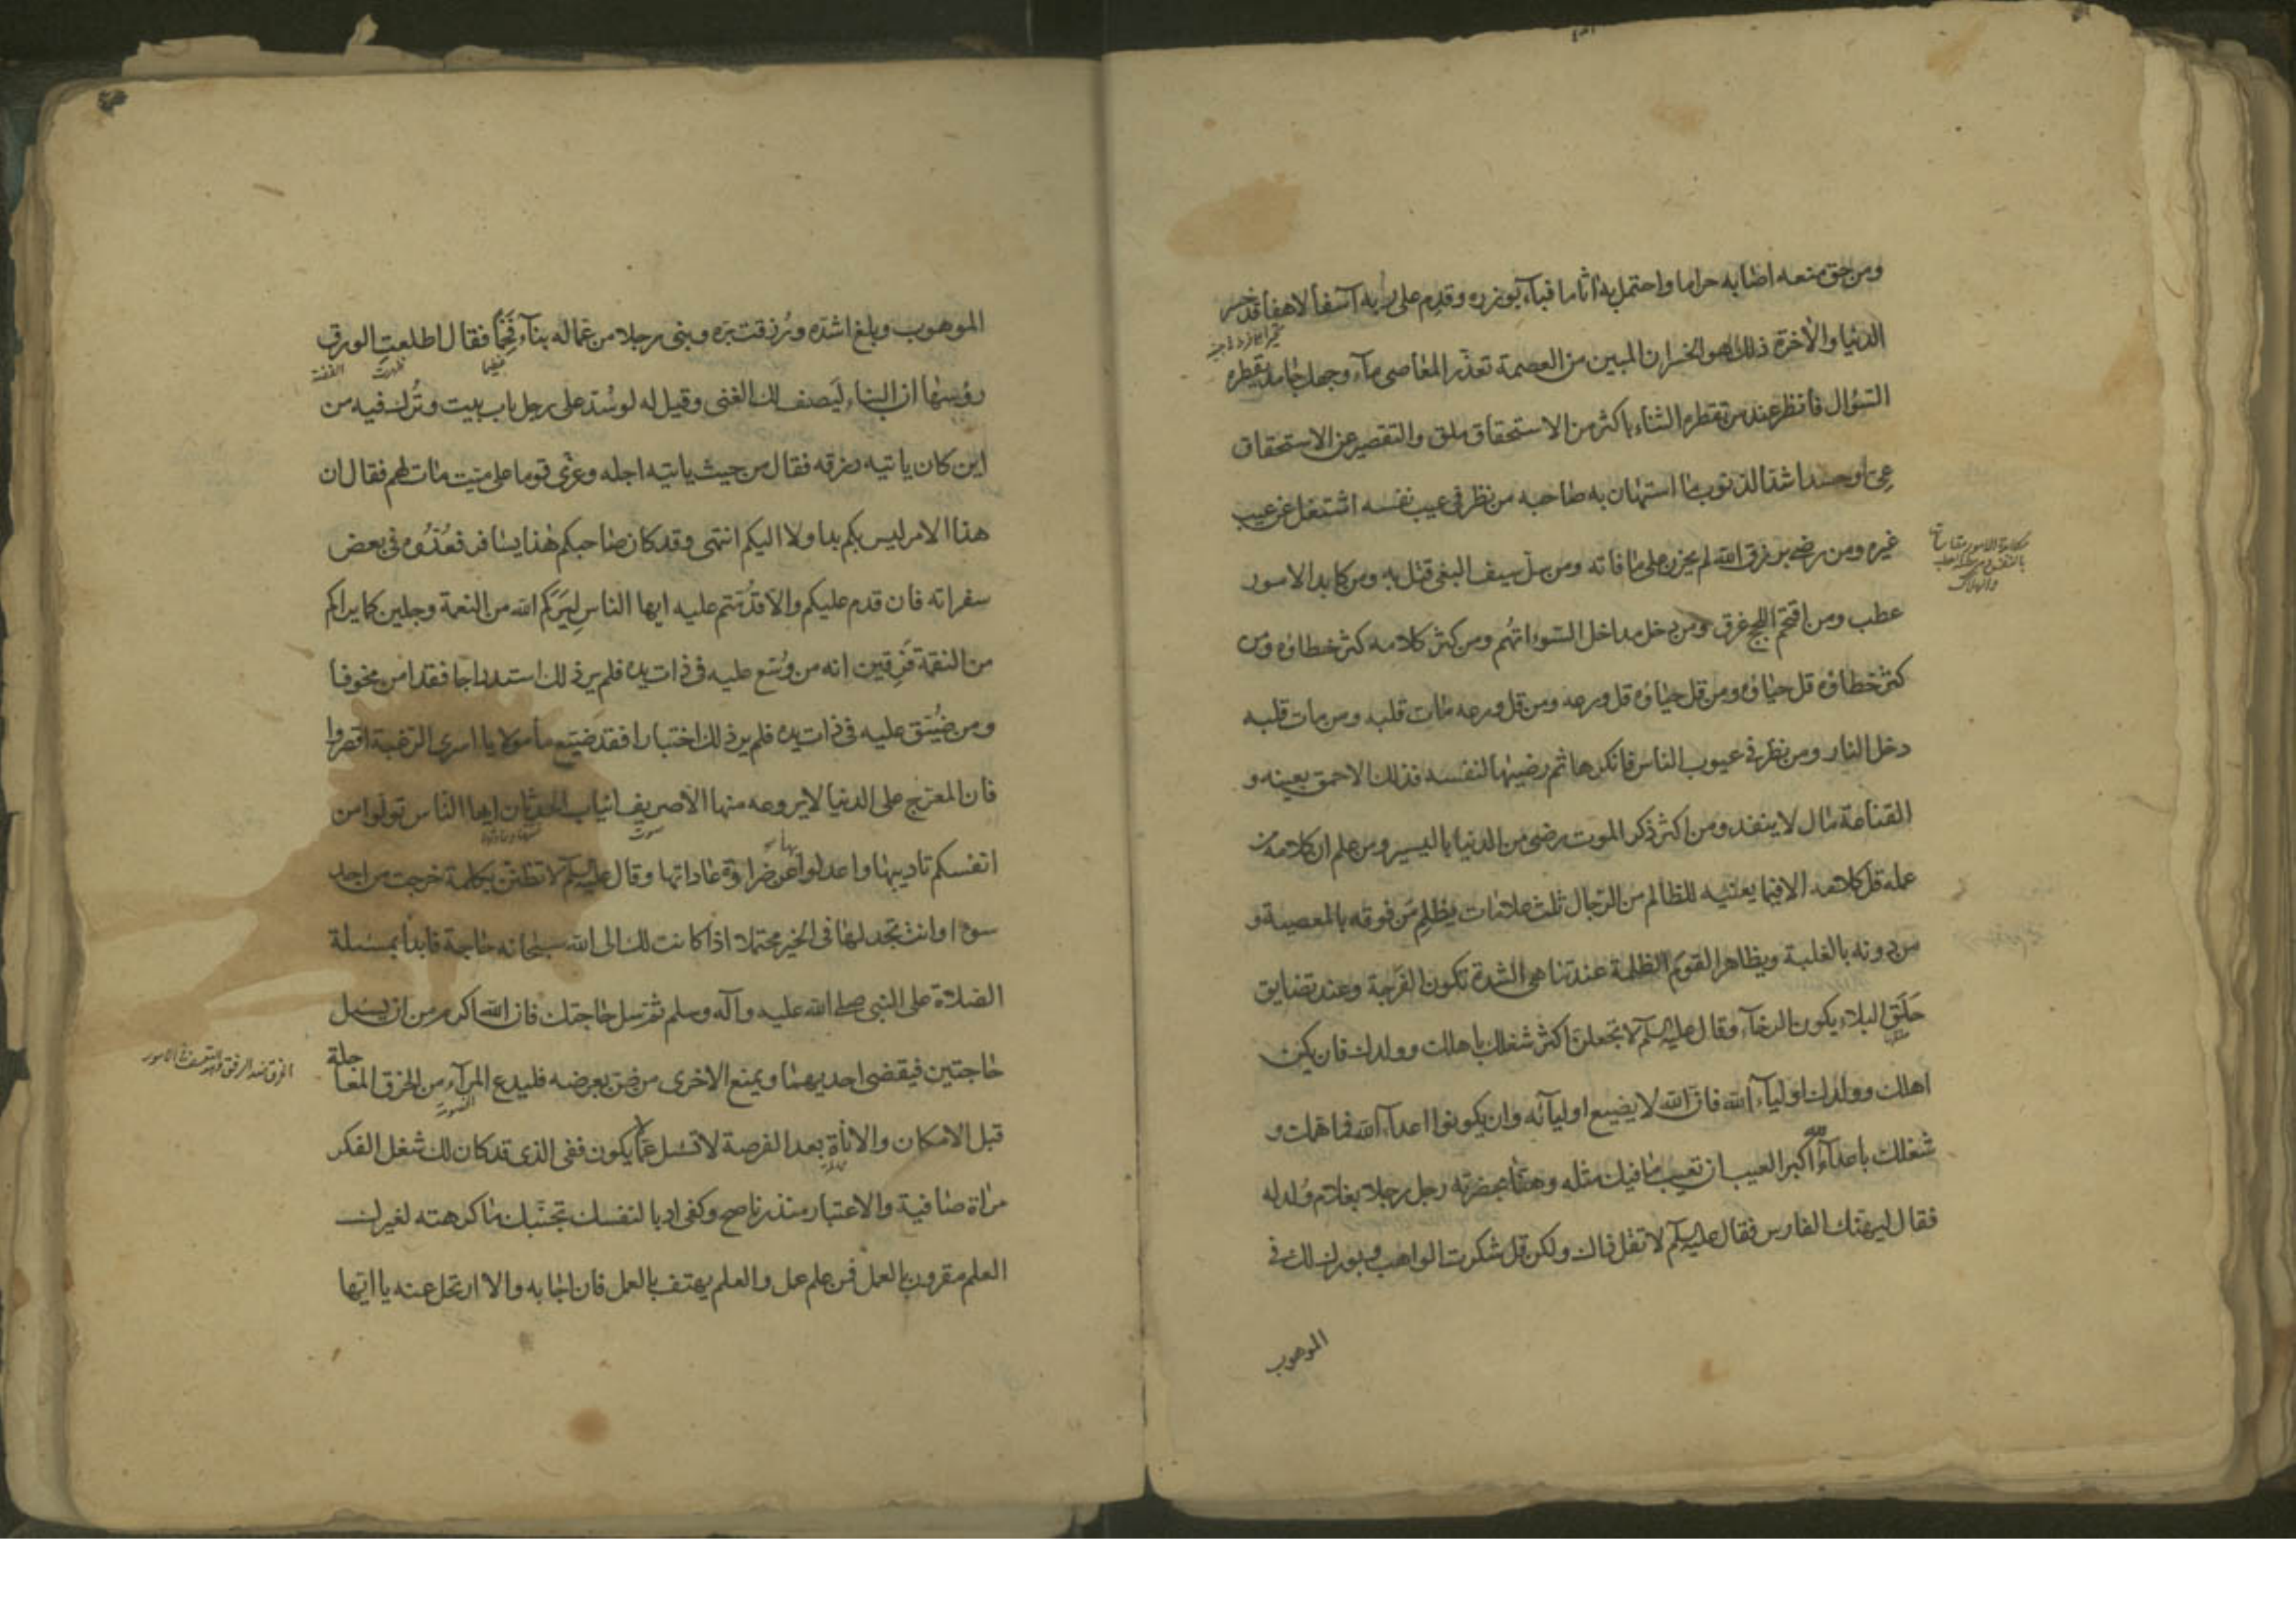 ومن حق منعه اصابه حراما واحتمل به اثاما فباء بوزره وقدم على ربه آسفا لاهفا قد خسر
الدنيا والاخرة ذلك هو الخسران المبين من العصمة تعذر المعاصى ماء وجهك جامد يقطره
السؤال فانظر عند من تقطره الثناء باكثر من الاستحقاق ملق والتقصير عن الاستحقاق
عىّ او حسد اشد الذنوب ما استهان به صاحبه من نظر فى عيب نفسه اشتغل عن عيب
غيره ومن رضى برزق الله لم يحزن على ما فاته ومن سل سيف البغى قتل به ومن كابد الامور
عطب ومن اقتحم اللجج غرق ومن دخل مداخل السوء اتهم ومن كثر كلامه كثر خطاؤه ومن
كثر خطاؤه قل حياؤه ومن قل حياؤه قل ورعه ومن قل ورعه مات قلبه ومن مات قلبه
دخل النار ومن نظر فى عيوب الناس فانكرها ثم رضيها لنفسه فذلك الاحمق بعينه و
القناعة مال لا ينفد ومن اكثر ذكر الموت رضى من الدنيا باليسير ومن علم ان كلامه من
عمله قل كلامه الا فيما يعنيه للظالم من الرجال ثلث علامات يظلم من فوقه بالمعصية و
من دونه بالغلبة ويظاهر القوم الظلمة عند تناهى الشدة تكون الفرجة وعند تضايق
حَلَق البلاء يكون الرخاء وقال عليه السلم لا تجعلن اكثر شغلك باهلك وولدك فان يكن
اهلك وولدك اولياء الله فان الله لا يضيع اوليائه وان يكونوا اعداء الله فما همك و
شغلك باعداء الله اكبر العيب ان تعيب ما فيك مثله وهنّأ بحضرته رجل رجلا بغلام وُلد له
فقال ليهنك الفارس فقال عليه السلم لا تقل ذاك ولكن قل شكرت الواهب وبورك لك فى
الموهوب
مكابدة الامور مقاساتها
والهلاك
الموهوب وبلغ اشده ورُزقت بره وبنى رجل من عماله بناء فَخْما فقال اطلعتِ الورق
عظيما
ظهرت
الفضة
رؤسها ان البناء ليصف لك الغنى وقيل له لو سُد على رجل باب بيت وتُرك فيه من
اين كان ياتيه رزقه فقال من حيث ياتيه اجله وعزّى قوما على ميت مات لهم فقال ان
هذا الامر ليس بكم بدا ولا اليكم انتهى وقد كان صاحبكم هذا يسافر فعُدّوه فى بعض
سفراته فان قدم عليكم والا قدمتم عليه ايها الناس ليَرَكم الله من النعمة وجلين كما يراكم
من النقمة فَرِقين انه من وُسّع عليه فى ذات يده فلم ير ذلك استدراجا فقد امن مخوفا
ومن ضُيّق عليه فى ذات يده فلم ير ذلك اختبارا فقد ضيّع مأمولا يا اسرى الرغبة اقصروا
فان المعرّج على الدنيا لا يروعه منها الا صريف انياب الحدثان ايها الناس تولوا من
صوت
انفسكم تاديبها واعدلوا بها عن ضراوة عاداتها وقال عليه السلم لا تظنن بكلمة خرجت من احد
سوءا وانت تجد لها فى الخير محتملا اذا كانت لك الى الله سبحانه حاجة فابدأ بمسئلة
الصلاة على النبى صلى الله عليه وآله وسلم ثم سل حاجتك فان الله اكرم من ان يسئل
حاجتين فيقضى احديهما ويمنع الاخرى من ضن بعرضه فليدع المرآء من الخرق المعاجلة
الخرق ضد الرفق
قبل الامكان والاناة بعد الفرصة لا تسئل عما لا يكون ففى الذى قد كان لك شغل الفكر
مراة صافية والاعتبار منذر ناصح وكفى ادبا لنفسك تجنّبك ما كرهته لغيرك
العلم مقرون بالعمل فمن علم عمل والعلم يهتف بالعمل فان اجابه والا ارتحل عنه يا ايها